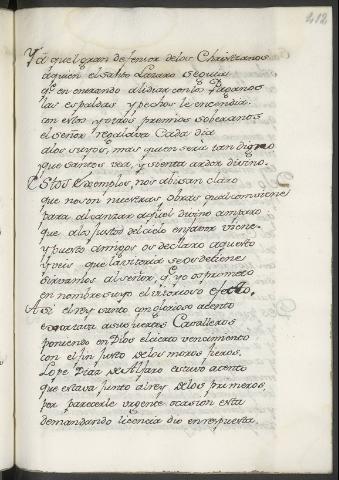 212
Y a quel gran defensor delos Christianos
aquien el santo Lazaro seguia
qe en entrando alidiar con los Paganos
las espaldas y pechos le encendia.
con estos yotros premios soberanos
el señor regalava Cada dia
alos suyos, mas quien sera tan digno
que santos vea, y sienta ardor divino.
Estos Exemplos, nos abisan claro
que no son nuestras obras qual conviene
para alcanzar aquel divino amparo
que alos justos del cielo en favor viene
y puesto amigos os declaro aquesto
y veis que la vitoria se os detiene
sirvamos al señor, qe yo os prometo
en nombre suyo el vitorioso efecto.
Asi el rey santo con glorioso acento
exortava asus fuertes Cavalleros
poniendo en Dios el cierto vencimento
con el fin justo delos moros fieros.
Lope Diaz de Alfaro estuvo atento
que estava junto al rey de los primeros,
por parecerle urgente ocasion esta
demandando licencia dio en respuesta.